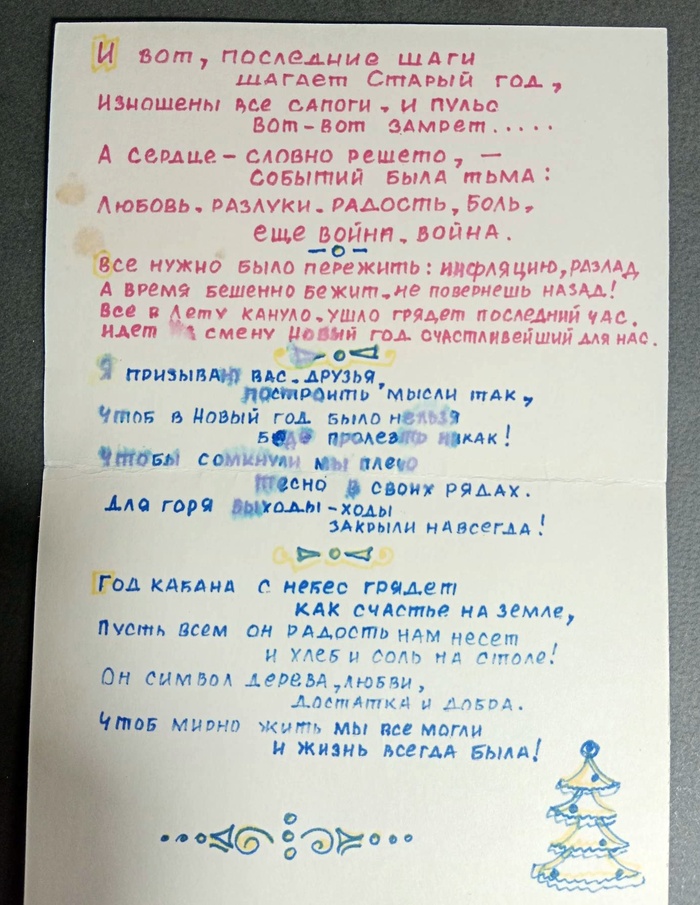 И вот, последние шаги
шагает Старый год,
Изношены все сапоги. и пульс
вот-вот замрет.....
А сердце - словно решето, —
событий была тьма:
Любовь. разлуки. радость, боль,
еще война. война.
Все нужно было пережить: инфляцию, разлад
А время бешенно бежит. не повернешь назад!
Все в Лету кануло. ушло грядет последний час.
идет на смену Новый год счастливейший для нас.
Я призываю вас. друзья,
построить мысли так,
Чтоб в Новый год было нельзя
беде пролезть никак!
Чтобы сомкнули мы плечо
тесно в своих рядах.
Для горя выходы-ходы
закрыли навсегда!
Год кабана с небес грядет
как счастье на земле,
Пусть всем он радость нам несет
и хлеб и соль на столе!
Он символ дерева, любви,
достатка и добра.
Чтоб мирно жить мы все могли
и жизнь всегда была!